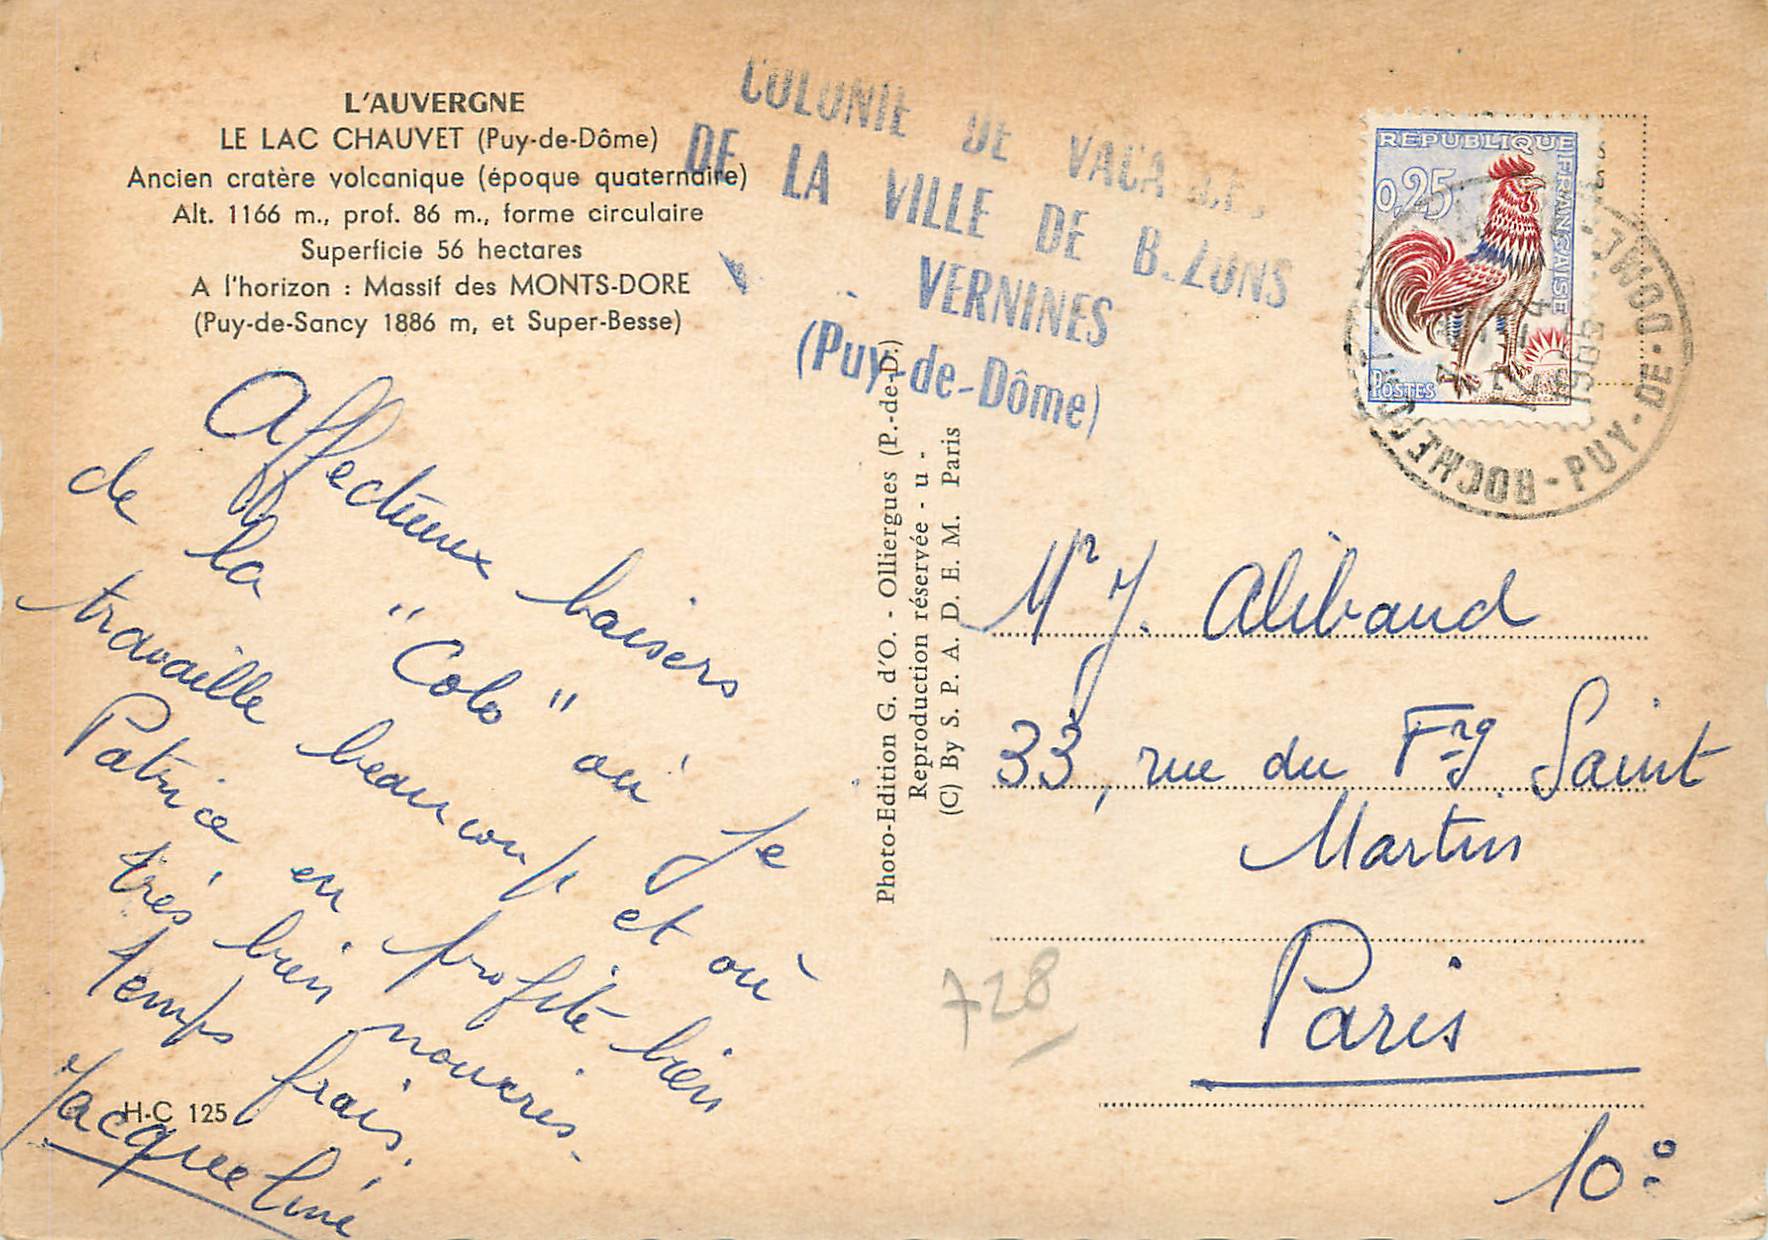 L'AUVERGNE
LE LAC CHAUVET (Puy-de-Dôme)
Ancien cratère volcanique (époque quaternaire)
Alt. 1166 m., prof. 86 m., forme circulaire
Superficie 56 hectares
A l'horizon : Massif des MONTS-DORE
(Puy-de-Sancy 1886 m, et Super-Besse)
COLONIE DE VACA
DE LA VILLE DE B.ZONS
VERNINES
(Puy-de-Dôme)
REPUBLIQUE
FRANÇAISE
0,25
POSTES
ROCHEFORT
PUY-DE-DOME
Affectueux baisers
de la "Colo" où Je
travaille beaucoup et où
Patrice en profite bien
très bien nourris.
Temps frais.
Jacqueline
H-C 125
Photo-Edition G. d'O. - Olliergues (P.-de-D.)
Reproduction réservée - u -
(C) By S. P. A. D. E. M. Paris
Mr J. Alibaud
33, rue du Frg Saint
Martin
Paris
10°
728